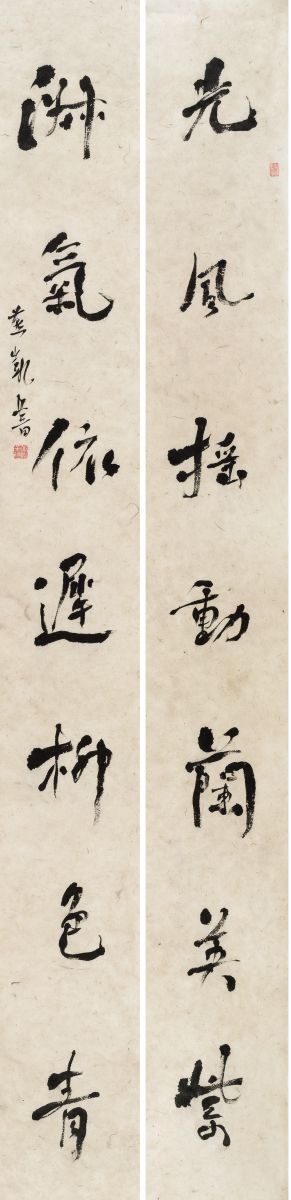 光風搖動蘭英紫
淑氣依遲柳色青
凱書